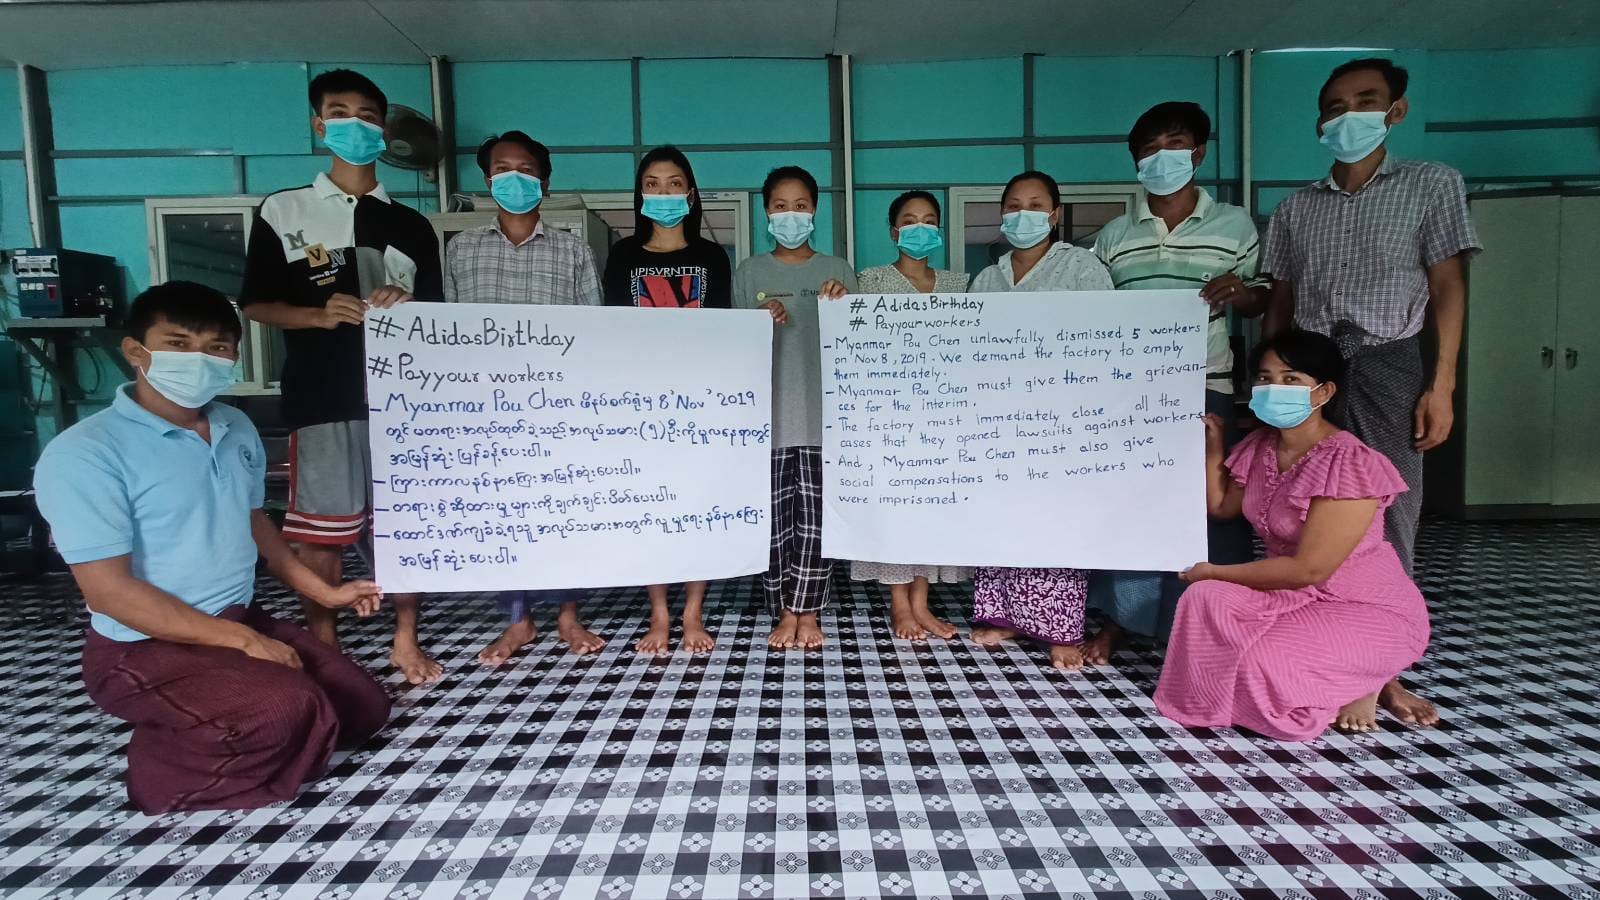 # AdidasBirthday
# Payyour workers
- Myanmar Pou Chen ဖိနပ်စက်ရုံမှ 8' Nov' 2019
တွင် မတရားအလုပ်ထုတ်ခဲ့သည့် အလုပ်သမား (၅) ဦးကို မူလနေရာတွင်
အမြန်ဆုံး ပြန်ခန့်ပေးပါ။
- ကြားကာလနစ်နာကြေး အမြန်ဆုံးပေးပါ။
- တရားစွဲဆိုထားမှုများကို ချက်ချင်းပိတ်ပေးပါ။
- ထောင်ဒဏ်ကျခံခဲ့ရသူ အလုပ်သမားအတွက် လူမှုရေးနစ်နာကြေး
အမြန်ဆုံးပေးပါ။
# AdidasBirthday
# Payyourworkers
- Myanmar Pou Chen unlawfully dismissed 5 workers
on Nov 8, 2019. We demand the factory to employ
them immediately.
- Myanmar Pou Chen must give them the grievan-
ces for the interim.
- The factory must immediately close all the
cases that they opened lawsuits against workers
- And, Myanmar Pou Chen must also give
social compensations to the workers who
were imprisoned.
M
V
N